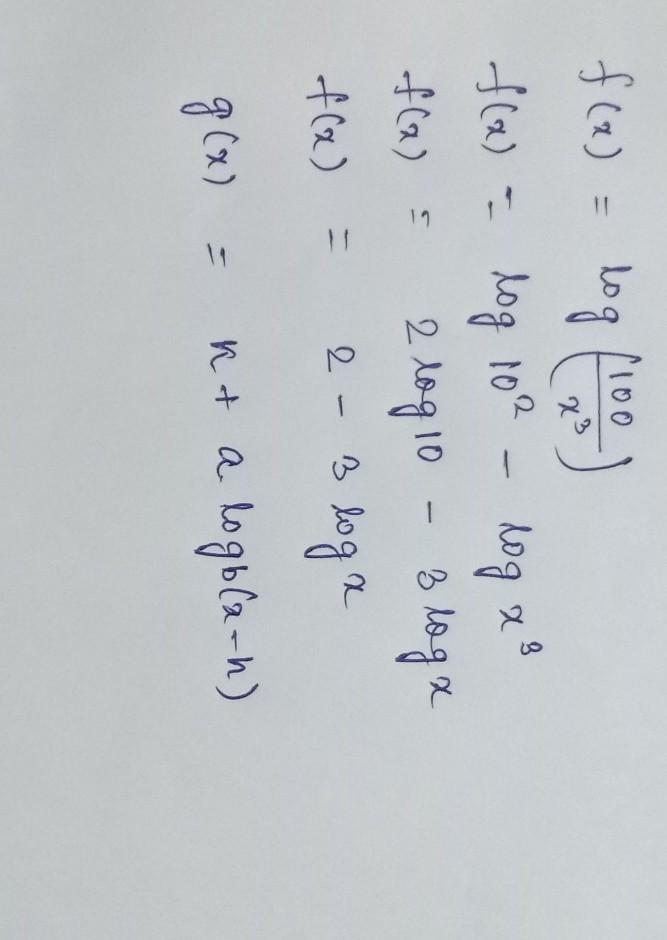 f(x) = log (100/x³)
f(x) = log 10² - log x³
f(x) = 2 log 10 - 3 log x
f(x) = 2 - 3 log x
g(x) = n + a log b(x - h)